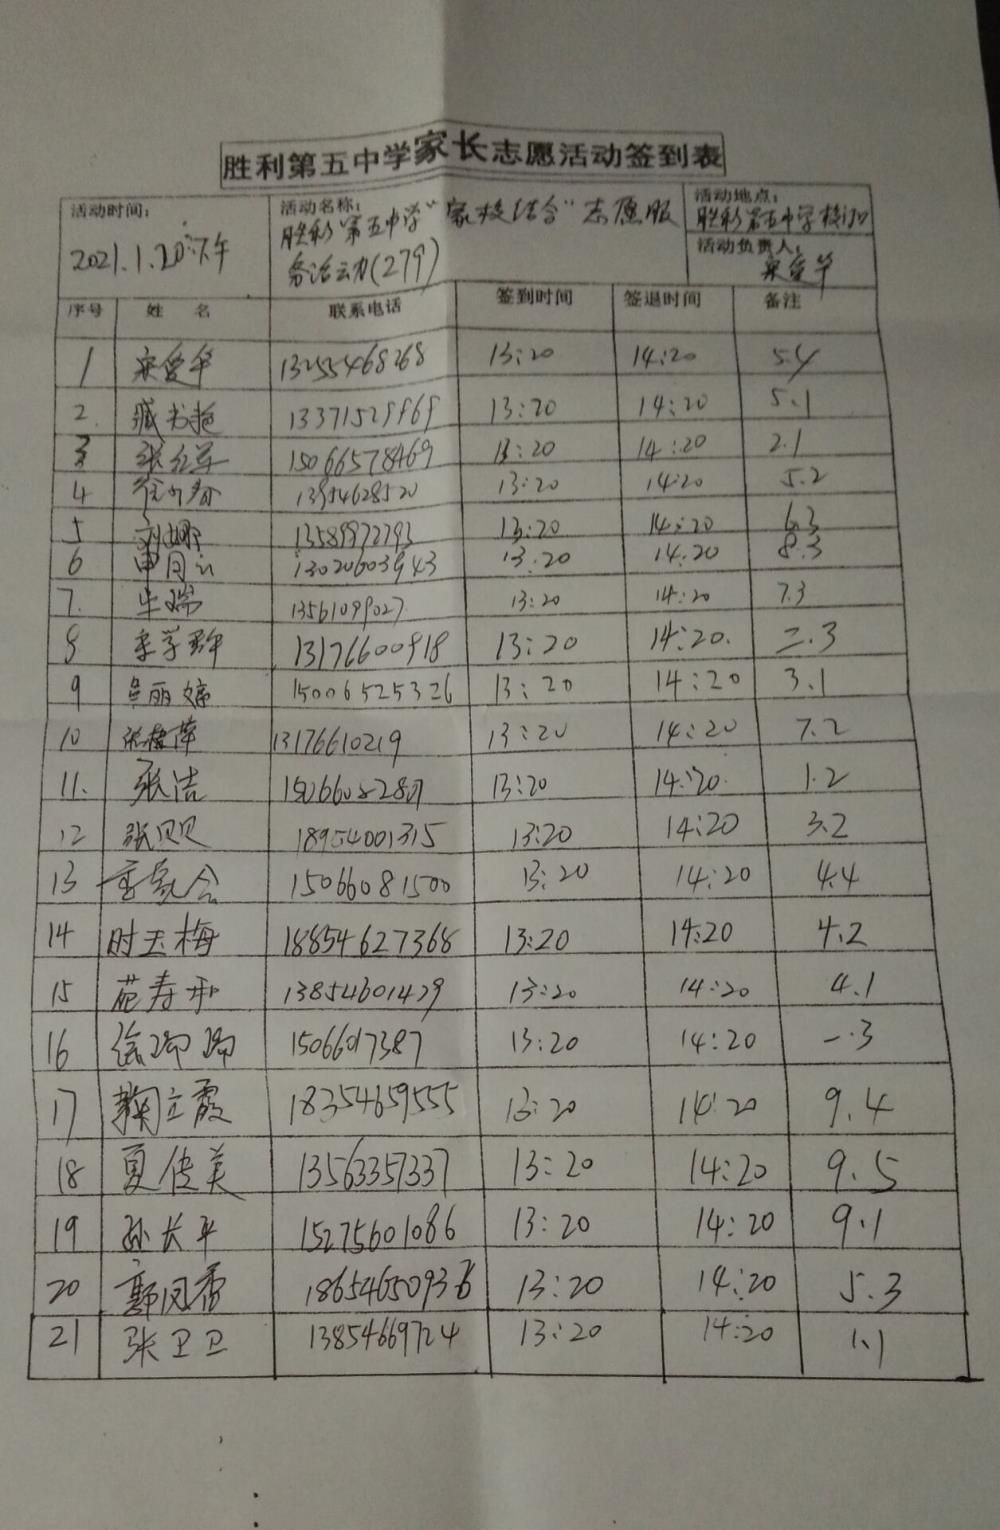 胜利第五中学家长志愿活动签到表
活动时间: 2021.1.20下午
活动名称: 胜利“第五中学“家校结合”志愿服
务活动(279)
活动地点: 胜利第五中学校门口
活动负责人: 宋爱华
序号 姓名 联系电话 签到时间 签退时间 备注
1 宋爱华 13255468268 13:20 14:20 5.4
2. 臧书艳 13371529869 13:20 14:20 5.1
3 张红军 15066578469 13:20 14:20 2.1
4 13954628520 13:20 14:20 5.2
5 刘娜 13589972793 13:20 14:20 6.3
6 申月云 13020603943 13:20 14:20 8.3
7. 毕瑞 13561099027 13:20 14:20 7.3
8 季学群 13176600918 13:20 14:20. 二.3
9 丽婷 15006525326 13:20 14:20 3.1
10 萍 13176610219 13:20 14:20 7.2
11. 张洁 13:20 14:20. 1.2
12 张贝贝 18954001315 13:20 14:20 3.2
13 15066081500 13:20 14:20 4.4
14 时玉梅 18854627368 13:20 14:20 4.2
15 范寿和 13854601429 13:20 14:20 4.1
16 徐瑞瑞 15066017387 13:20 14:20 一.3
17 鞠立霞 18354659555 13:20 14:20 9.4
18 夏俊美 13563357337 13:20 14:20 9.5
19 孙长平 15275601086 13:20 14:20 9.1
20 郭凤香 18654650936 13:20 14:20 5.3
21 张卫卫 13854669724 13:20 14:20 1.1